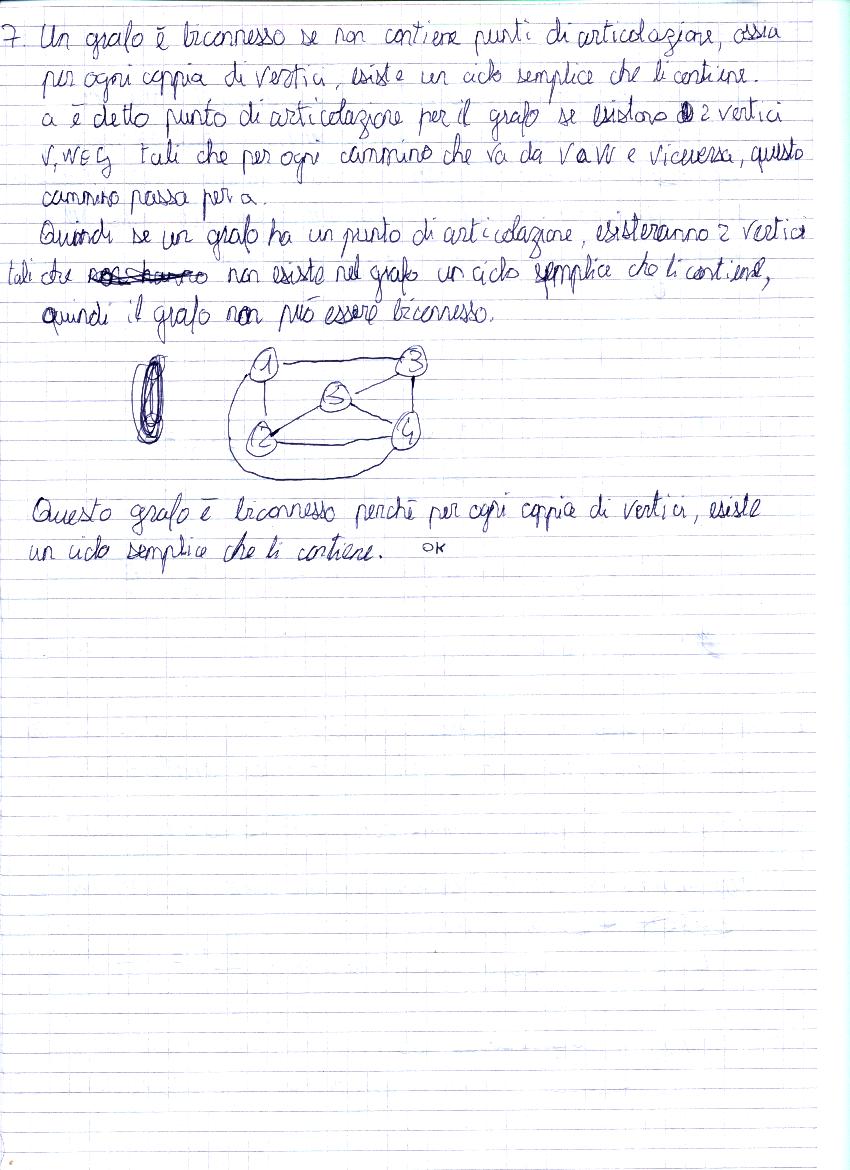 7. Un grafo è biconnesso se non contiene punti di articolazione, ossia
per ogni coppia di vertici, esiste un ciclo semplice che li contiene.
a è detto punto di articolazione per il grafo se esistono 2 vertici
V, W ∈ G tali che per ogni cammino che va da V a W e viceversa, questo
cammino passa per a.
Quindi se un grafo ha un punto di articolazione, esisteranno 2 vertici
tali che non esiste nel grafo un ciclo semplice che li contiene,
quindi il grafo non può essere biconnesso.
1 3
5
2 4
Questo grafo è biconnesso perchè per ogni coppia di vertici, esiste
un ciclo semplice che li contiene. OK